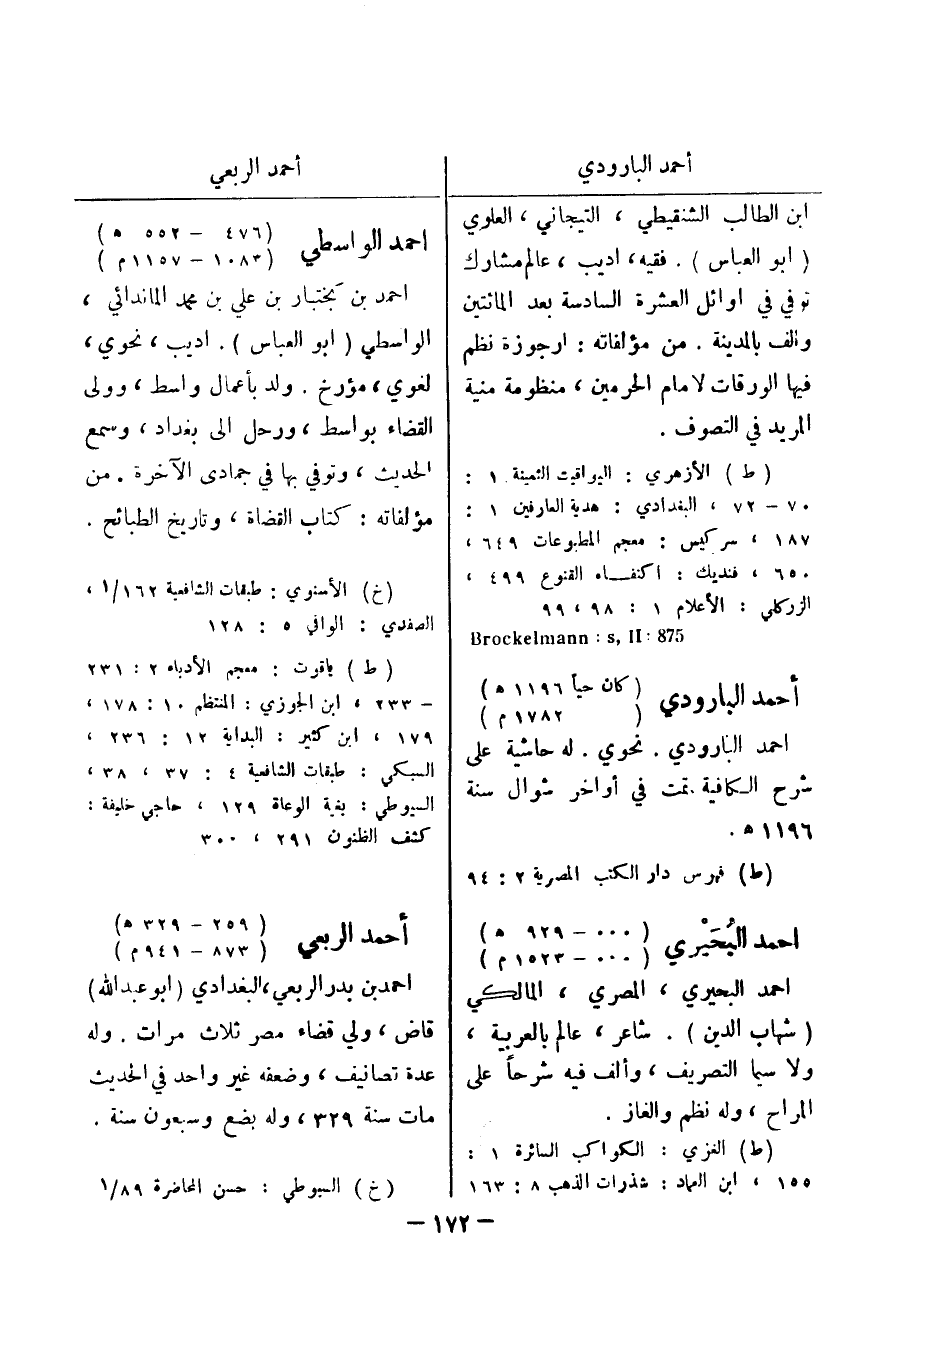 أحمد البارودي
ابن الطالب الشنقيطي ، التيجاني ، العلوي
( ابو العباس ) . فقيه، اديب ، عالم مشارك
توفي في اوائل العشرة السادسة بعد المائتين
والف بالمدينة . من مؤلفاته : ارجوزة نظم
فيها الورقات لامام الحرمين ، منظومة منية
المريد في التصوف .
( ط ) الأزهري : اليواقيت الثمينة ١ :
٧٠ – ٧٢ ، البغدادي : هدية العارفين ١ :
١٨٧ ، سركيس : معجم المطبوعات ٦٤٩ ،
٦٥٠ ، فنديك : اكتفاء القنوع ٤٩٩ ،
الزركلي : الأعلام ١ : ٩٨ ، ٩٩
Brockelmann : s, II : 875
أحمد البارودي ( كان حياً ١١٩٦ ه )
( ١٧٨٢ م )
احمد البارودي . نحوي . له حاشية على
شرح الكافية تمت في أواخر شوال سنة
١١٩٦ ه .
(ط) فهرس دار الكتب المصرية ٢ : ٩٤
احمد البُحَيْري ( ٠٠٠ – ٩٢٩ ه )
( ٠٠٠ – ١٥٢٣ م )
احمد البحيري ، المصري ، المالكي
( شهاب الدين ) . شاعر ، عالم بالعربية ،
ولا سيما التصريف ، وألف فيه شرحاً على
المراح ، وله نظم والغاز .
(ط) الغزي : الكواكب السائرة ١ :
١٥٥ ، ابن العماد : شذرات الذهب ٨ : ١٦٣
أحمد الربعي
احمد الواسطي ( ٤٧٦ – ٥٥٢ ه )
( ١٠٨٣ – ١١٥٧ م )
احمد بن بختيار بن علي بن محمد الماندائي ،
الواسطي ( ابو العباس ) . اديب ، نحوي ،
لغوي ، مؤرخ . ولد بأعمال واسط ، وولى
القضاء بواسط ، ورحل الى بغداد ، وسمع
الحديث ، وتوفي بها في جمادى الآخرة . من
مؤلفاته : كتاب القضاة ، وتاريخ الطبائح .
(خ) الأسنوي : طبقات الشافعية ١/١٦٢ ،
الصفدي : الوافي ٥ : ١٢٨
( ط ) ياقوت : معجم الأدباء ٢ : ٢٣١
– ٢٣٣ ، ابن الجوزي : المنتظم ١٠ : ١٧٨ ،
١٧٩ ، ابن كثير : البداية ١٢ : ٢٣٦ ،
السبكي : طبقات الشافعية ٤ : ٣٧ ، ٣٨ ،
السيوطي : بغية الوعاة ١٢٩ ، حاجي خليفة :
كشف الظنون ٢٩١ ، ٣٠٠
أحمد الربعي ( ٢٥٩ – ٣٢٩ ه )
( ٨٧٣ – ٩٤١ م )
احمد بن بدر الربعي ، البغدادي ( ابو عبد الله )
قاض ، ولي قضاء مصر ثلاث مرات . وله
عدة تصانيف ، وضعفه غير واحد في الحديث
مات سنة ٣٢٩ ، وله بضع وسبعون سنة .
( خ ) السيوطي : حسن المحاضرة ١/٨٩
– ١٧٢ –